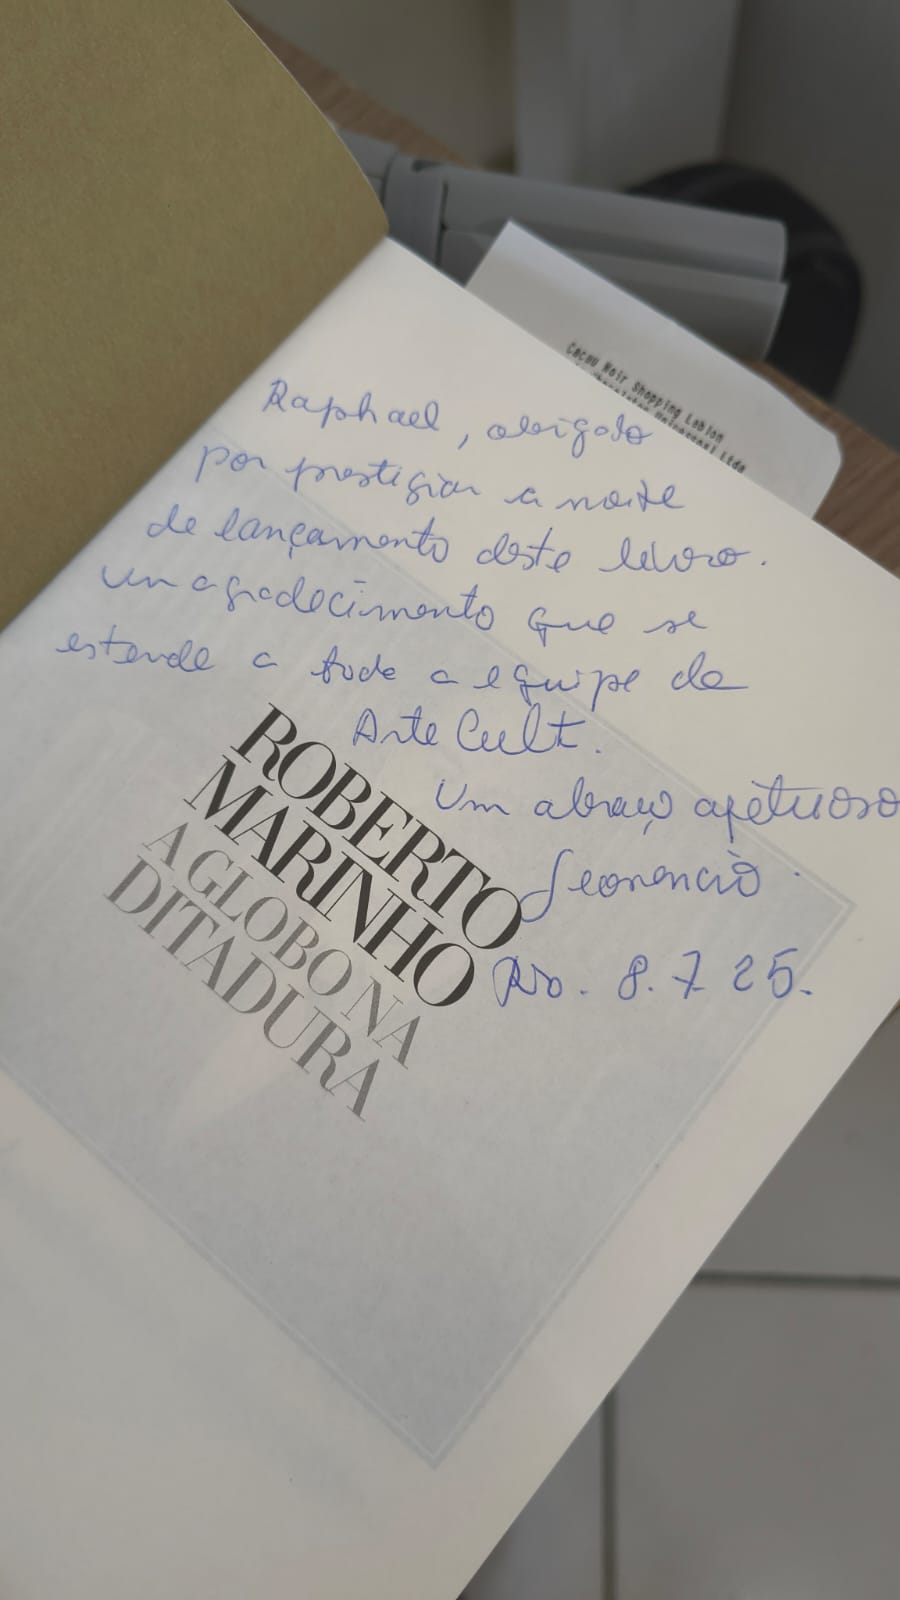 Cacau Noir Shopping Leblon
Universal Ltda
Raphael, obrigado
por prestigiar a noite
de lançamento deste livro.
um agradecimento que se
estende a toda a equipe de
ArteCult.
Um abraço afetuoso
Leonencio
Rio. 8.7.25.
ROBERTO
MARINHO
A GLOBO NA
DITADURA